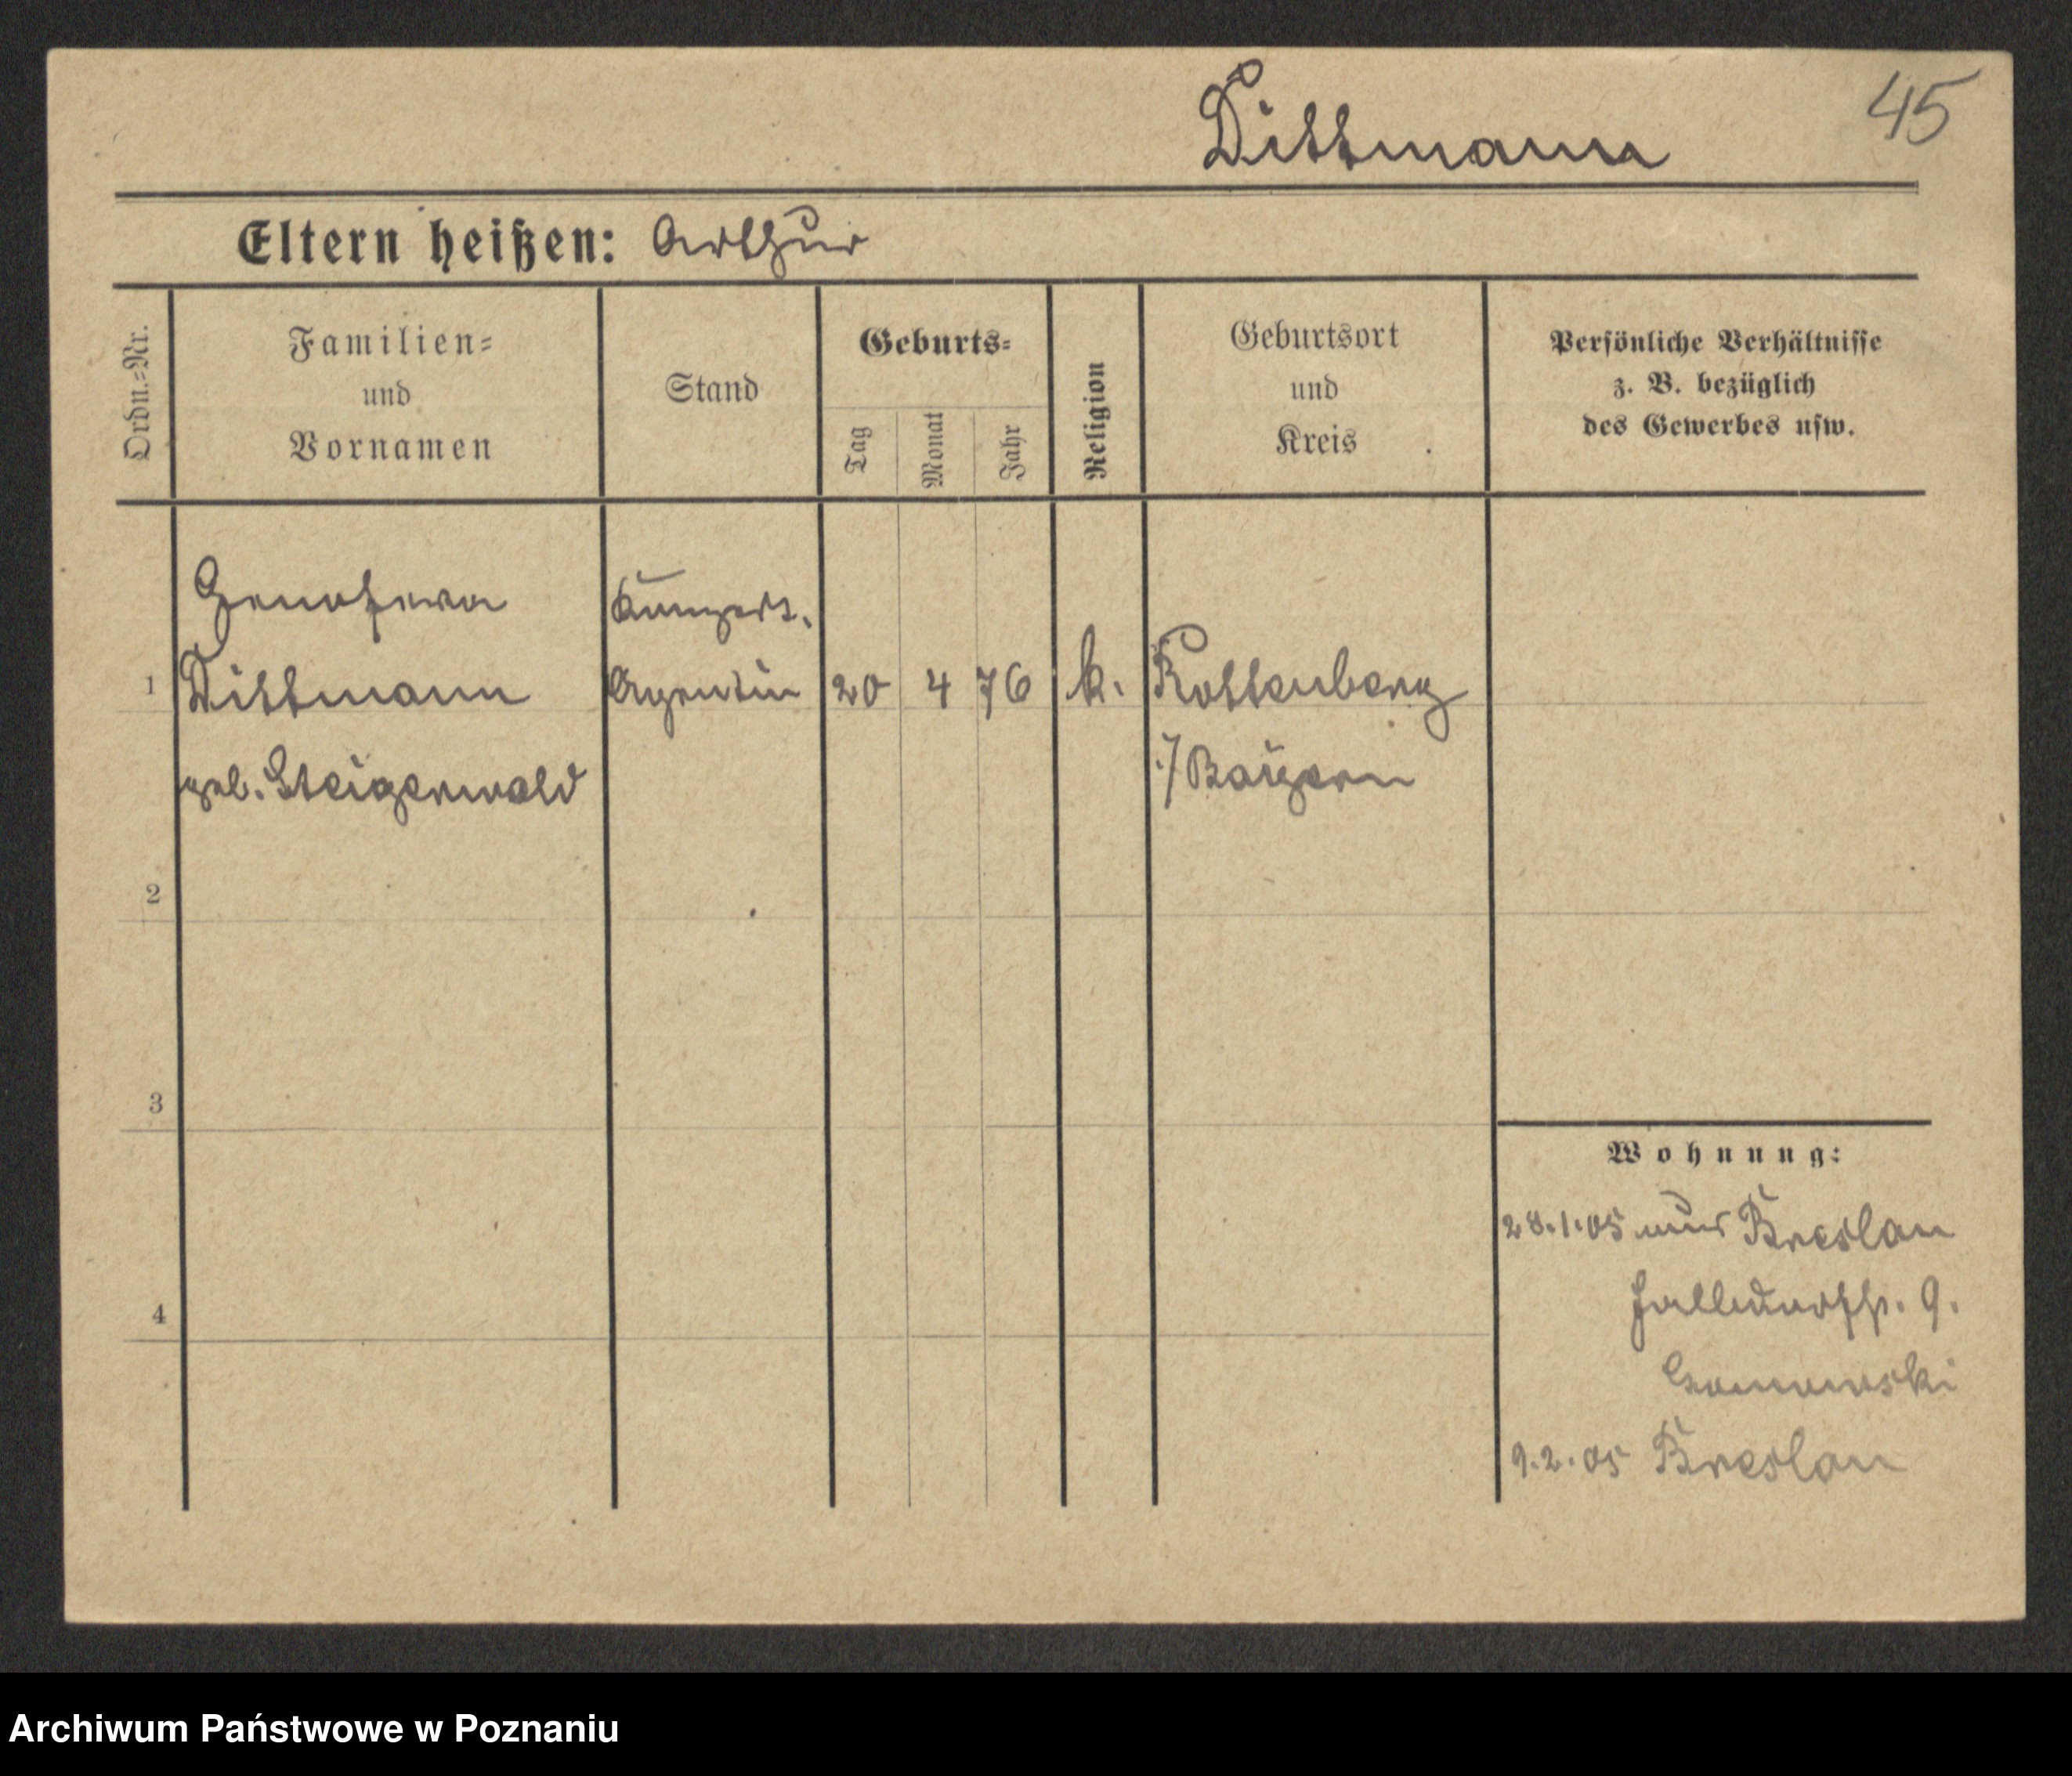 45
Dittmann
Eltern heißen: Arthur
Ordn.-Nr.
Familien-
und
Vornamen
Stand
Geburts-
Tag
Monat
Jahr
Religion
Geburtsort
und
Kreis
Persönliche Verhältnisse
z. B. bezüglich
des Gewerbes usw.
Genofewa
1 Dittmann Agentin 20 4 76 k. Rottenberg
geb. Steigerwald
i/Bayern
2
3
4
Wohnung:
28.1.05 aus Breslau
9.
9.2.05 Breslau
Archiwum Państwowe w Poznaniu